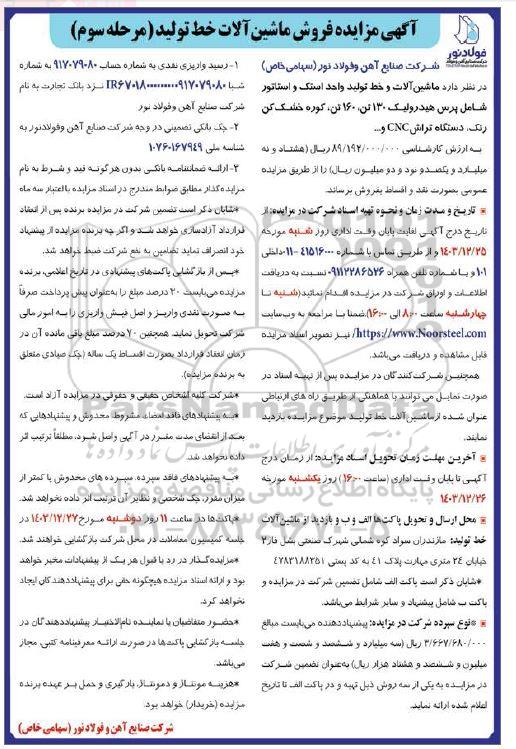 آگهی مزایده فروش ماشین‌آلات خط تولید (مرحله سوم)
فولاد نور
شرکت صنایع آهن وفولاد نور (سهامی خاص)
در نظر دارد ماشین‌آلات و خط تولید واحد اسنک و استاتور
شامل پرس هیدرولیک ۱۳۰ تن، ۱۶۰ تن، کوره خشک‌کن
رنگ، دستگاه تراش CNC و...
به ارزش کارشناسی ۸۹/۱۹۲/۰۰۰/۰۰۰ ریال (هشتاد و نه
میلیارد و یکصدو نود و دو میلیون ریال) را از طریق مزایده
عمومی بصورت نقد و اقساط بفروش برساند.
تاریخ و مدت زمان و نحوه تهیه اسناد شرکت در مزایده: از
تاریخ درج آگهی لغایت پایان وقت اداری روز شنبه مورخه
۱۴۰۳/۱۲/۲۵ و از طریق تماس با شماره ۴۱۵۱۶۰۰۰-۰۱۱ داخلی
۱۰۱ و یا شماره تلفن همراه ۰۹۱۱۲۲۸۶۵۲۶ نسبت به دریافت
اطلاعات و اوراق شرکت در مزایده اقدام نمائید (شنبه تا
چهارشنبه ساعت ۸:۰۰ الی ۱۶:۰۰). ضمنا با مراجعه به وب‌سایت
https://www.Noorsteel.com/ نیز تصویر اسناد مزایده
قابل مشاهده و دریافت می‌باشد.
همچنین شرکت‌کنندگان در مزایده پس از تهیه اسناد در
صورت تمایل می توانند با هماهنگی از طریق راه های ارتباطی
عنوان شده از ماشین آلات خط تولید موضوع مزایده بازدید
نمایند.
آخرین مهلت زمان تحویل اسناد مزایده: از زمان درج
آگهی تا پایان وقت اداری (ساعت ۱۶:۰۰) روز یکشنبه مورخه
۱۴۰۳/۱۲/۲۶
محل ارسال و تحویل پاکت‌ها الف و ب و بازدید از ماشین‌آلات
خط تولید: مازندران سواد کوه شمالی شهرک صنعتی بشل فاز۲
خیابان ۲۴ متری مهارت پلاک ۴۱ به کد پستی ۴۷۸۳۱۸۸۳۵۱
*شایان ذکر است پاکت الف شامل تضمین شرکت در مزایده و
پاکت ب شامل پیشنهاد و سایر شرایط می‌باشد.
*نوع سپرده شرکت در مزایده: پیشنهاددهنده می‌بایست مبالغ
۳/۶۶۷/۶۸۰/۰۰۰ ریال (سه میلیارد و ششصد و شصت و هفت
میلیون و ششصد و هشتاد هزار ریال) به‌عنوان تضمین شرکت
در مزایده به یکی از سه روش ذیل تهیه و در پاکت الف تا تاریخ
اعلام شده ارائه نماید.
۱- رسید واریزی نقدی به شماره حساب ۹۱۷۰۷۹۰۸۰ به شماره
شبا نزد بانک تجارت به نام
شرکت صنایع آهن وفولاد نور
۲- چک بانکی تضمینی در وجه شرکت صنایع آهن وفولادنور به
شناسه ملی ۱۰۷۶۰۱۶۷۹۴۹
۳- ارائه ضمانتنامه بانکی بدون هرگونه قید و شرط به نام
مزایده‌گذار مطابق ضوابط مندرج در اسناد مزایده با اعتبار سه ماه
*شایان ذکر است تضمین شرکت در مزایده برنده پس از انعقاد
قرارداد آزادسازی خواهد شد و اگر چه برنده مزایده از پیشنهاد
خود انصراف نماید تضامین به نفع شرکت ضبط خواهد شد.
*پس از بازگشایی پاکت‌های پیشنهادی در تاریخ اعلامی، برنده
مزایده می‌بایست ۳۰ درصد مبلغ را به‌عنوان پیش پرداخت صرفاً
به صورت نقدی واریز و اصل فیش واریزی را به امور مالی
شرکت تحویل نماید. همچنین ۷۰ درصد مبلغ باقی مانده آن در
زمان انعقاد قرارداد بصورت اقساط یک ساله (چک صیادی متعلق
به برنده مزایده).
*شرکت کلیه اشخاص حقیقی و حقوقی در مزایده آزاد است.
*به پیشنهادهای فاقد امضاء، مشروط، مخدوش و پیشنهادهایی که
بعد از انقضای مدت مقرر در آگهی واصل شود، مطلقاً ترتیب اثر
داده نخواهد شد.
*به پیشنهادهای فاقد سپرده، سپرده های مخدوش یا کمتر از
میزان مقرر، چک شخصی و نظایر آن ترتیب اثر داده نخواهد شد.
*پاکت‌ها در ساعت ۱۱ روز دوشنبه مورخ ۱۴۰۳/۱۲/۲۷ در
جلسه کمیسیون معاملات در محل شرکت بازگشایی خواهند شد.
*مزایده‌گذار در رد یا قبول هر یک از پیشنهادات مخیر خواهد
بود و ارائه اسناد مزایده هیچگونه حقی برای پیشنهاددهندگان ایجاد
نخواهد کرد.
*حضور متقاضیان یا نماینده تام‌الاختیار پیشنهاددهندگان در
جلسه بازگشایی پاکت‌ها در صورت ارائه معرفینامه کتبی، مجاز
می‌باشد.
*هزینه مونتاژ و دمونتاژ، بارگیری و حمل بر عهده برنده
مزایده (خریدار) خواهد بود.
شرکت صنایع آهن و فولاد نور (سهامی خاص)